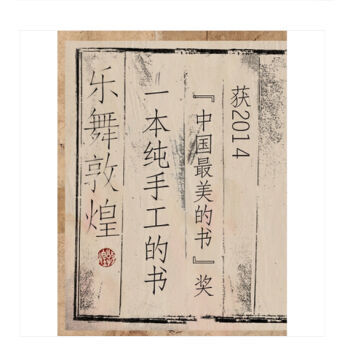 获2014
『中国最美的书』奖
一本纯手工的书
乐舞敦煌